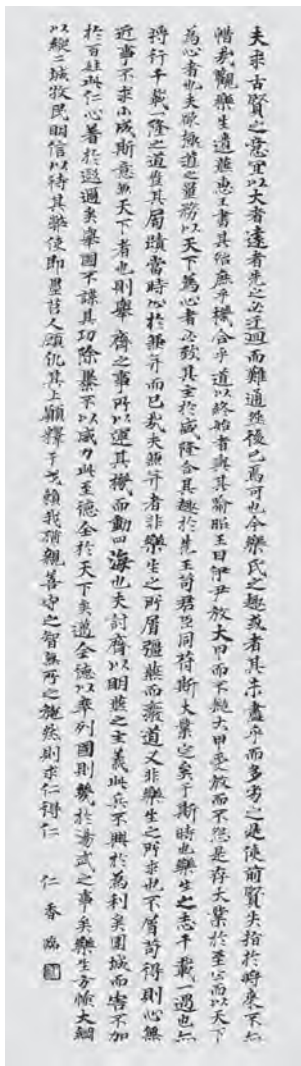 夫求古賢之意宜以大者遠者先之必迂迴而難通然後已焉可也今樂氏之趣或者其未盡乎而多劣之是使前賢失指於將來不亦
惜哉觀樂生遺燕惠王書其殆庶乎機合乎道以終始者與其喻昭王曰伊尹放大甲而不疑大甲受放而不怨是存大業於至公而以天下
為心者也夫欲極道之量務以天下為心者必致其主於盛隆合其趣於先王苟君臣同符斯大業定矣于斯時也樂生之志千載一遇也亦
將行千載一隆之道豈其局蹟當時止於兼并而已哉夫兼并者非樂生之所屑彊燕而廢道又非樂生之所求也不屑苟得則心無
近事不求小成斯意兼天下者也則舉齊之事所以運其機而動四海也夫討齊以明燕之主義此兵不興於為利矣圍城而害不加
於百姓此仁心著於遐邇矣舉國不謀其功除暴不以威力此至德全於天下矣邁全德以率列國則幾於湯武之事矣樂生方恢大綱
以縱二城牧民明信以待其弊使即墨莒人顧仇其上願釋干戈賴我猶親善守之智無所之施然則求仁得仁 仁香臨